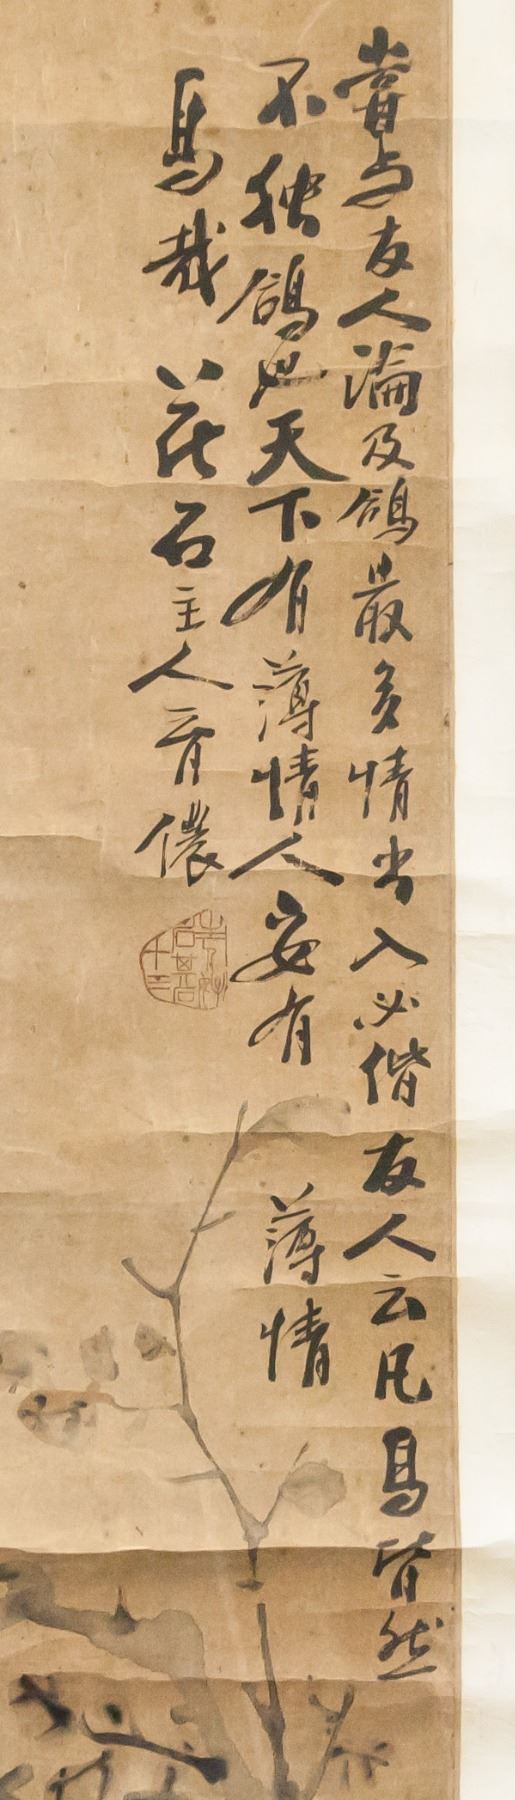 嘗与友人論及鴿最多情出入必偕友人云凡鳥皆然
不独鴿也天下有薄情人安有薄情
鳥哉 花石主人晋儂